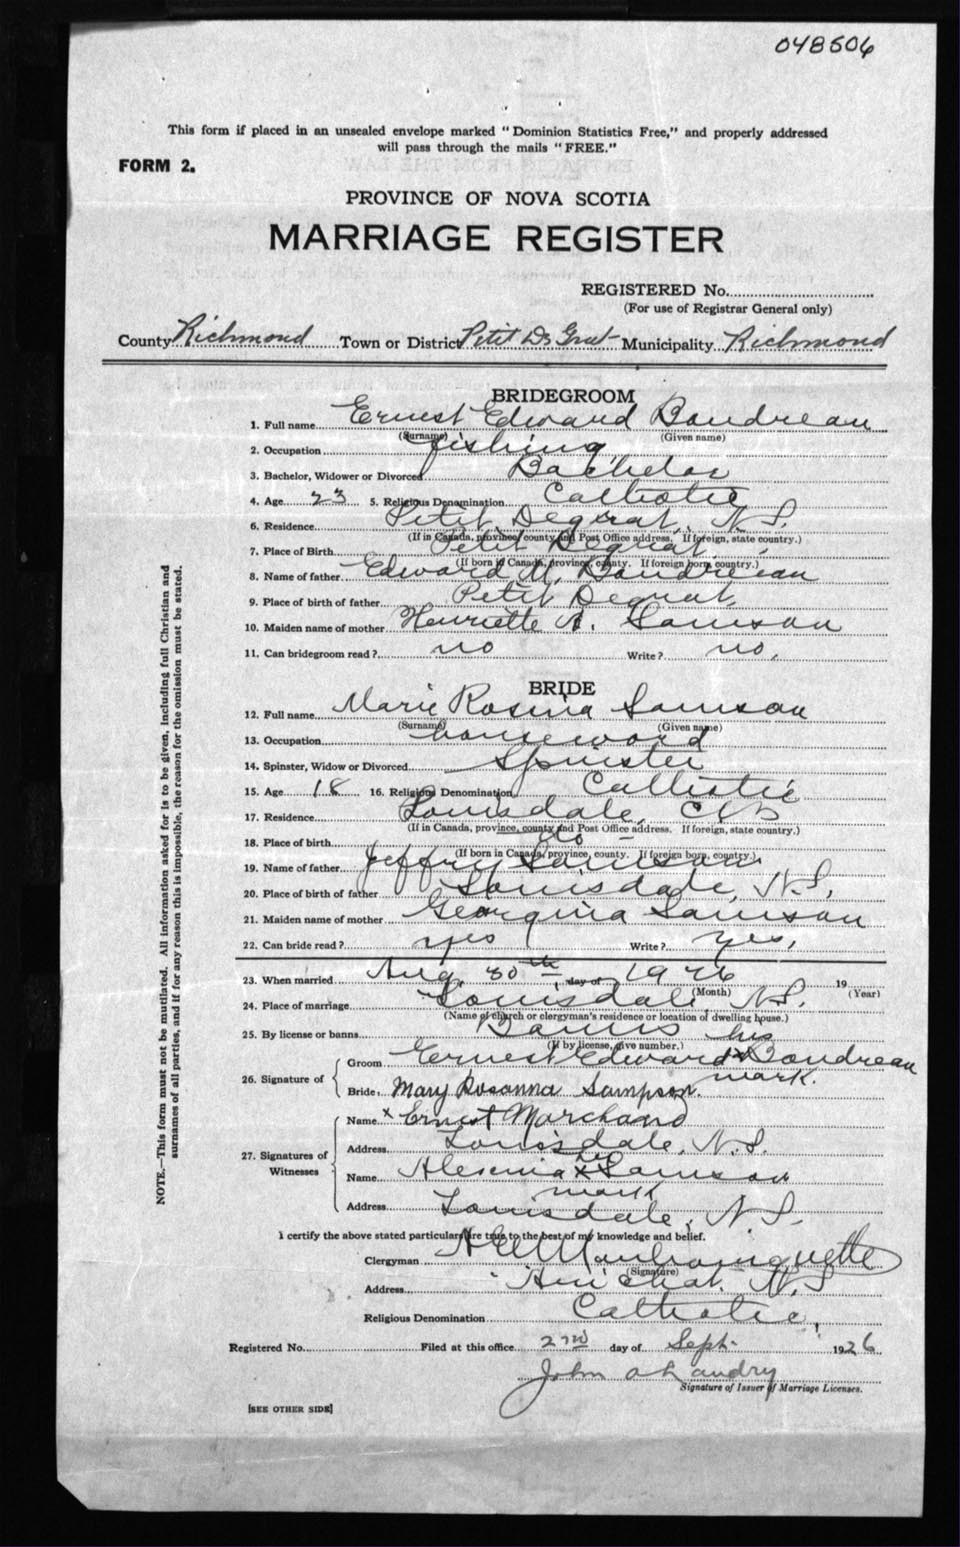 048506
This form if placed in an unsealed envelope marked "Dominion Statistics Free," and properly addressed
will pass through the mails "FREE."
FORM 2.
PROVINCE OF NOVA SCOTIA
MARRIAGE REGISTER
REGISTERED No.
(For use of Registrar General only)
County Richmond Town or District Petit De Grat Municipality Richmond
BRIDEGROOM
1. Full name Ernest Edward Boudreau
(Surname) (Given name)
2. Occupation fishing
3. Bachelor, Widower or Divorced Bachelor
4. Age 23 5. Religious Denomination Catholic
6. Residence Petit Degrat, N.S.
(If in Canada, province, county and Post Office address. If foreign, state country.)
7. Place of Birth Petit Degrat,
(If born in Canada, province, county. If foreign born, country.)
8. Name of father Edward M. Boudreau
9. Place of birth of father Petit Degrat,
10. Maiden name of mother Henriette A. Samson
11. Can bridegroom read? no Write? no,
BRIDE
12. Full name Marie Rosina Samson
(Surname) (Given name)
13. Occupation
14. Spinster, Widow or Divorced Spinster
15. Age 18 16. Religious Denomination Catholic
17. Residence Louisdale, C.B
(If in Canada, province, county and Post Office address. If foreign, state country.)
18. Place of birth do
(If born in Canada, province, county. If foreign born, country.)
19. Name of father Jeffry Samson
20. Place of birth of father Louisdale, N.S,
21. Maiden name of mother Georgina Samson
22. Can bride read? yes Write? yes,
23. When married Aug. 30th, day of 1926 19
(Month) (Year)
24. Place of marriage Louisdale, N.S.
(Name of church or clergyman's residence or location of dwelling house.)
25. By license or banns Banns
(If by license, give number.)
his
26. Signature of Groom Ernest Edward X Boudreau
mark.
Bride, Mary Rosanna Sampson.
27. Signatures of Witnesses
Name x Ernest Marchand
Address Louisdale, N.S.
her
Name Alexina X Samson
mark
Address Louisdale, N.S.
I certify the above stated particulars are true to the best of my knowledge and belief.
Clergyman
(Signature)
Address Arichat, N.S
Religious Denomination Catholic,
Registered No. Filed at this office 2nd day of Sept. 1926
John A Landry
Signature of Issuer of Marriage Licenses.
[SEE OTHER SIDE]
NOTE.—This form must not be mutilated. All information asked for is to be given, including full Christian and
surnames of all parties, and if for any reason this is impossible, the reason for the omission must be stated.